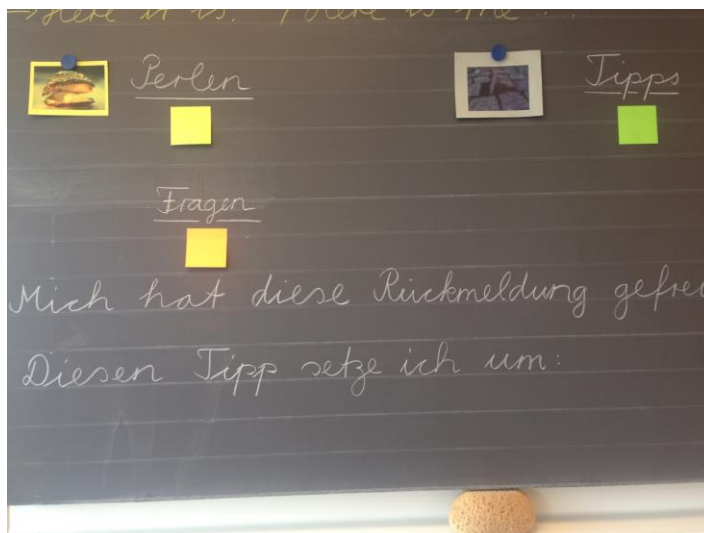 → Here it is. There is the ....
Perlen Tipps
Fragen
Mich hat diese Rückmeldung gefreu
Diesen Tipp setze ich um: